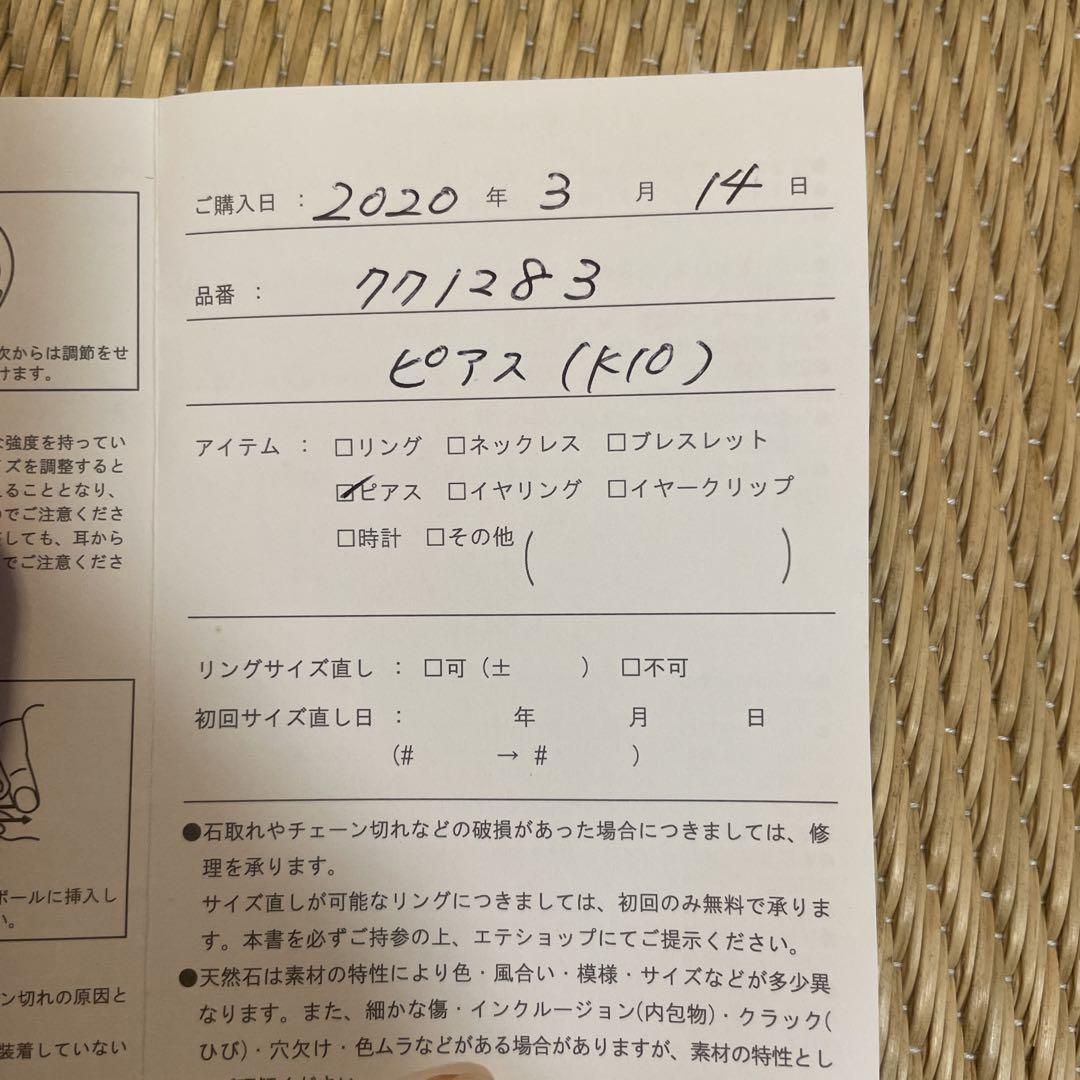 次からは調節をせ
けます。
な強度を持ってい
イズを調整すると
えることとなり、
のでご注意くださ
しても、耳から
でご注意くださ
ボールに挿入し
い。
ン切れの原因と
装着していない
ご購入日 : 2020 年 3 月 14 日
品番 : 771283
ピアス (K10)
アイテム : □リング □ネックレス □ブレスレット
☑ピアス □イヤリング □イヤークリップ
□時計 □その他 ( )
リングサイズ直し : □可 (± ) □不可
初回サイズ直し日 : 年 月 日
(# → # )
●石取れやチェーン切れなどの破損があった場合につきましては、修
理を承ります。
サイズ直しが可能なリングにつきましては、初回のみ無料で承りま
す。本書を必ずご持参の上、エテショップにてご提示ください。
●天然石は素材の特性により色・風合い・模様・サイズなどが多少異
なります。また、細かな傷・インクルージョン(内包物)・クラック(
ひび)・穴欠け・色ムラなどがある場合がありますが、素材の特性とし